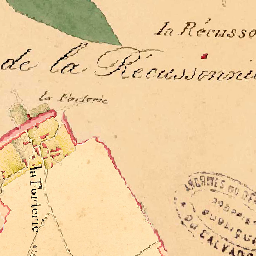 la Récusso
de la Récussonni
la Forterie
la Forterie
ARCHIVES DU DÉP
DU CALVADOS